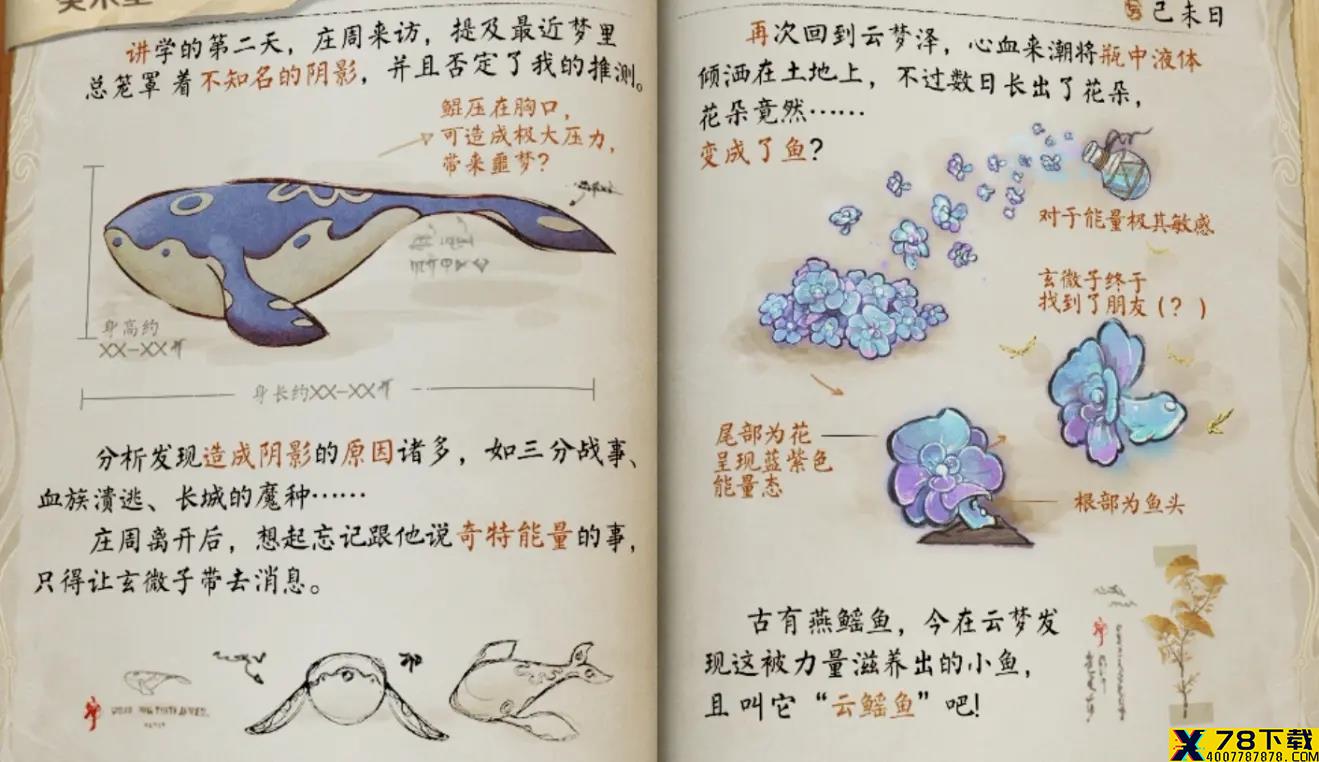 讲学的第二天，庄周来访，提及最近梦里
总笼罩着不知名的阴影，并且否定了我的推测。
鲲压在胸口，
可造成极大压力，
带来噩梦？
身高约
XX-XX
身长约XX-XX
分析发现造成阴影的原因诸多，如三分战事、
血族溃逃、长城的魔种……
庄周离开后，想起忘记跟他说奇特能量的事，
只得让玄微子带去消息。
己未日
再次回到云梦泽，心血来潮将瓶中液体
倾洒在土地上，不过数日长出了花朵，
花朵竟然……
变成了鱼？
对于能量极其敏感
玄微子终于
找到了朋友（？）
尾部为花
呈现蓝紫色
能量态
根部为鱼头
古有燕鳐鱼，今在云梦发
现这被力量滋养出的小鱼，
且叫它“云鳐鱼”吧！
78下载
4007787878.COM